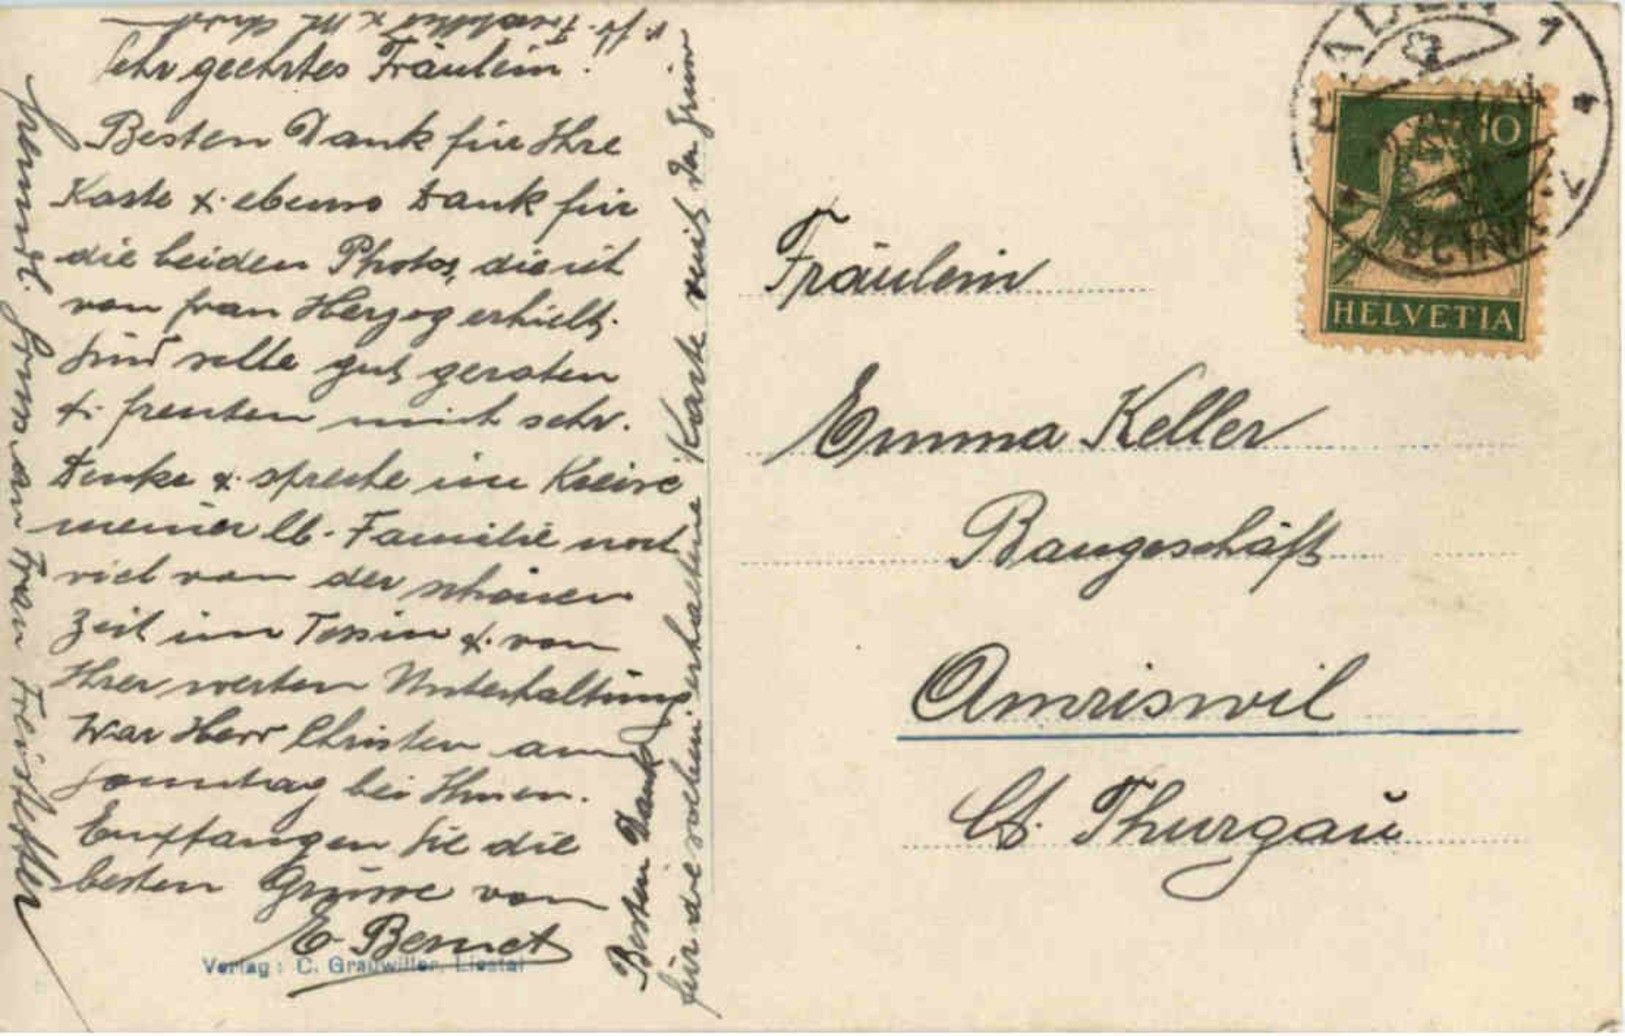 Sehr geehrtes Fräulein!
Besten Dank für Ihre
Karte & ebenso Dank für
die beiden Photos, die ich
von Frau Herzog erhielt.
Sind recht gut geraten
& freuten mich sehr.
Denke & spreche im Kreise
meiner lb. Familie noch
viel von der schönen
Zeit im Tessin & von
Ihrer werten Unterhaltung.
War Herr Christen am
Sonntag bei Ihnen.
Empfangen Sie die
besten Grüsse von
E. Bernet
Verlag: C. Grauwiller, Liestal
Besten Dank
für die erhaltene Karte
freundl. Gruss an Frau
Fräulein
Emma Keller
Baugeschäft
Amriswil
Ct. Thurgau
10
HELVETIA